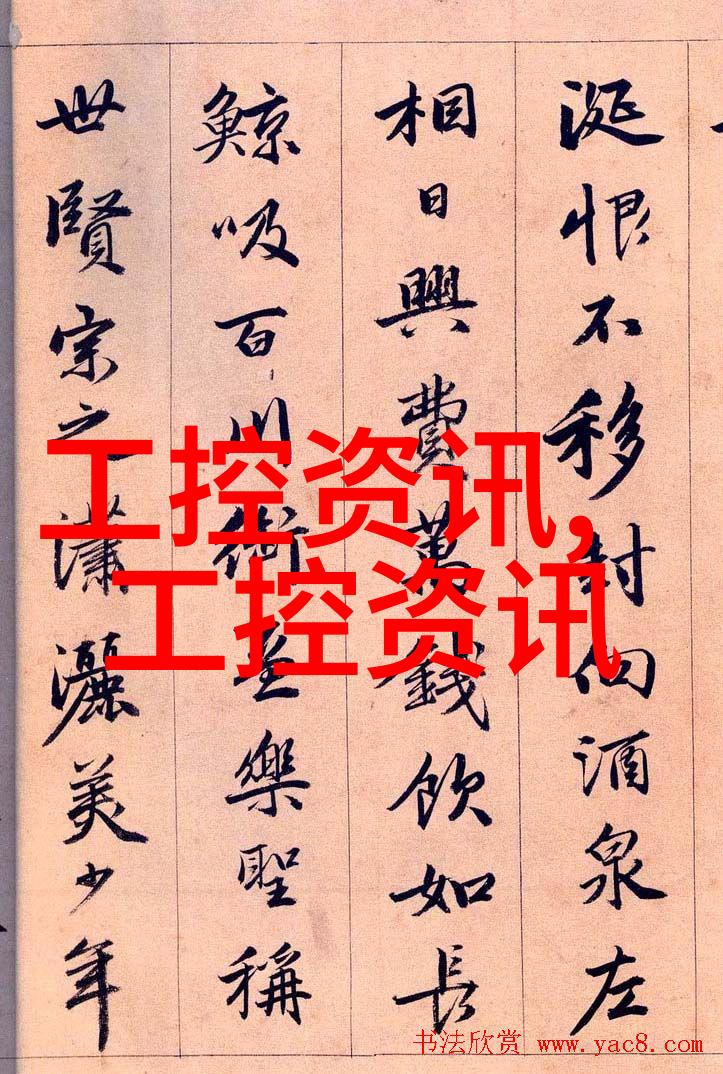 涎恨不移封向酒泉左
相日興費萬錢飲如長
鯨吸百川銜盃樂聖稱
世賢宗之瀟灑美少年
工控资讯,
工控资讯
书法欣赏 www.yac8.com